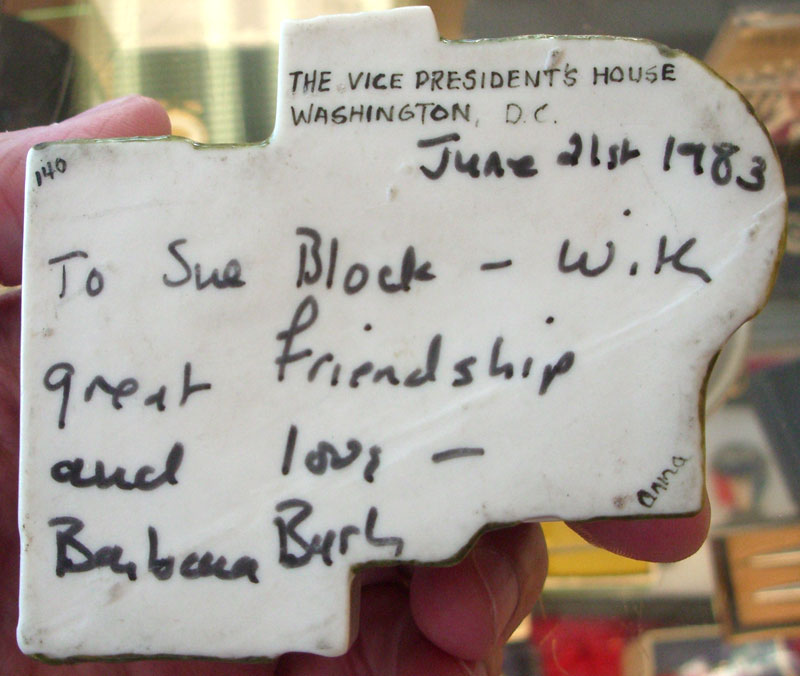 THE VICE PRESIDENT'S HOUSE
WASHINGTON, D.C.
June 21st 1983
140
To Sue Block - With
great friendship
and love -
Barbara Bush
anna